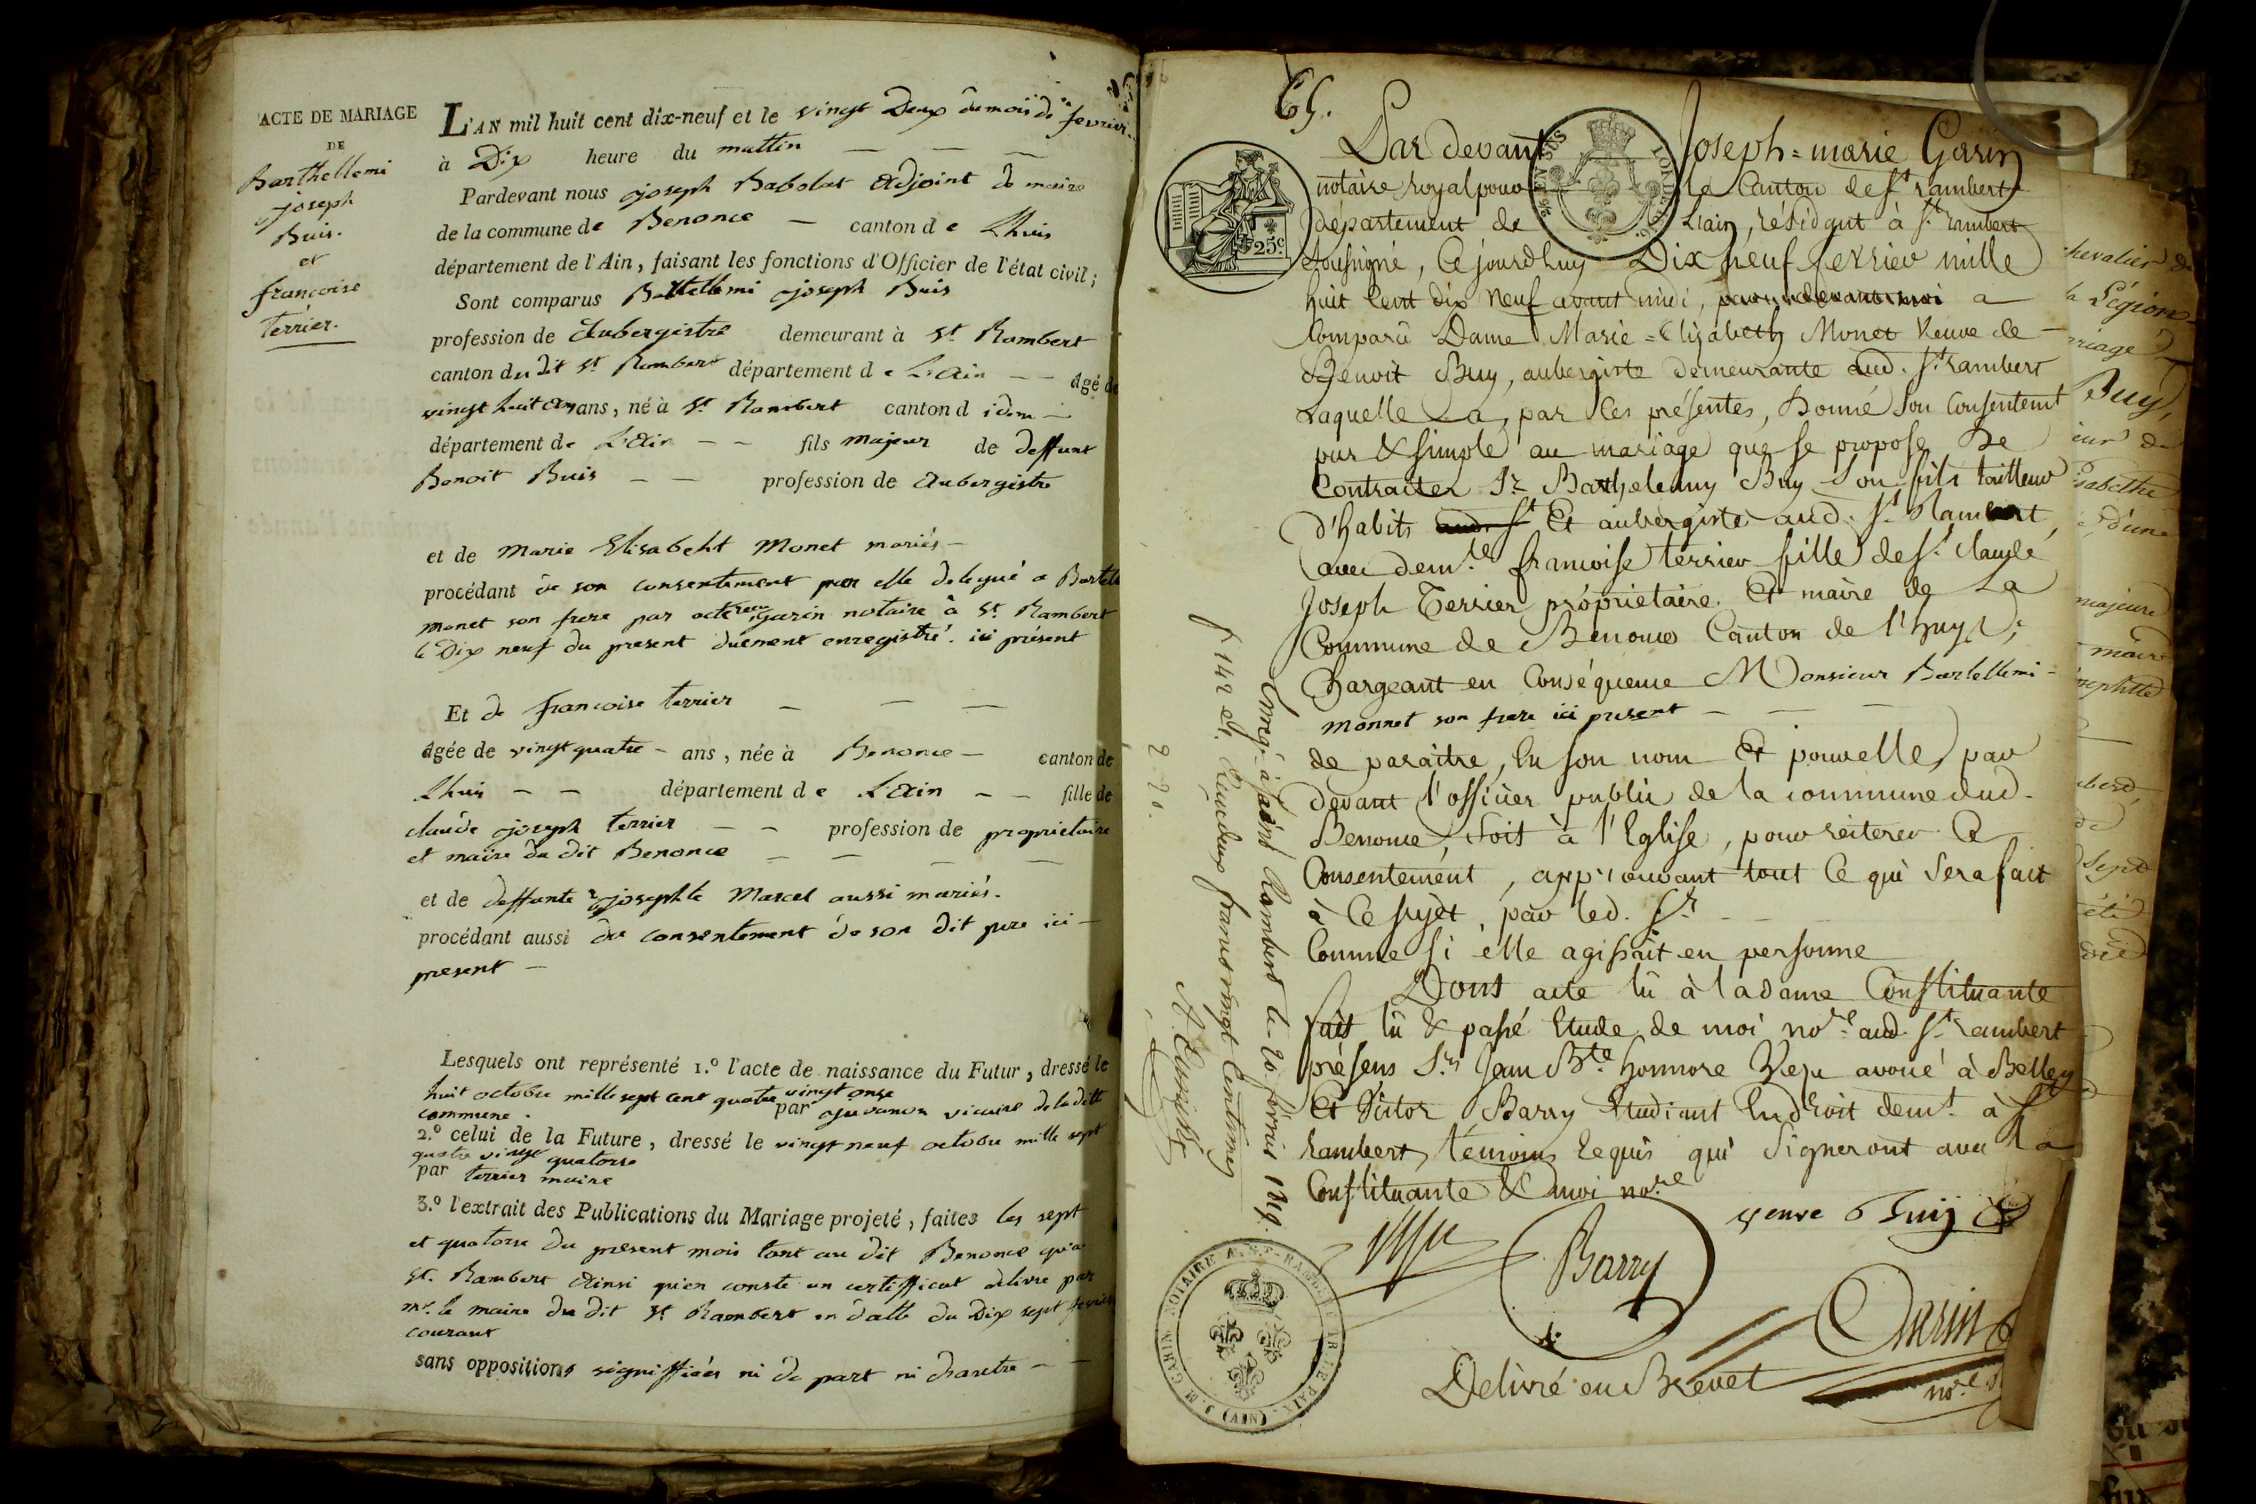 ACTE DE MARIAGE
DE
Barthellemi
joseph
Buis.
et
francoise
terrier.
L'AN mil huit cent dix-neuf et le vingt Deux du mois de fevrier
à Dix heure du mattin
Pardevant nous joseph Babolat Adjoint de maire
de la commune de Benonce canton de Lhuis
département de l'Ain, faisant les fonctions d'Officier de l'état civil;
Sont comparus Bartellemi joseph Buis
profession de Aubergistre demeurant à St Rambert
canton du dit St Rambert département de L'Ain âgé de
vingt huit ans, né à St Rambert canton d idem
département de L'Ain fils majeur de deffunt
Benoit Buis profession de Aubergistre
et de Marie Elisabeht Monet mariés
procédant de son consentement par elle delegué a Bartele
monet son frere par acte recu garin notaire à St Rambert
le Dix neuf du present duement enregistré. ici présent
Et de francoise terrier
âgée de vingt quatre ans, née à Benonce canton de
Lhuis département de L'Ain fille de
claude joseph terrier profession de proprietaire
et maire du dit Benonce
et de deffunte josephte Marcel aussi mariés.
procédant aussi du consentement de son dit pere ici
present
Lesquels ont représenté 1.º l'acte de naissance du Futur, dressé le
huit octobre mille sept cent quatre vingt onze
par juvanon vicaire de la ditte
commune.
2.º celui de la Future, dressé le vingt neuf octobre mille sept
quatre vingt quatorse
par terrier maire
3.º l'extrait des Publications du Mariage projeté, faites les sept
et quatorse du present mois tant au dit Benonce qu'a
St. Rambert Ainsi qu'en conste un certifficat delivre par
mr. le maire du dit St Rambert en datte du Dix sept fevrier
courant
sans oppositions signiffiées ni de part ni d'autre
Par devant Joseph-marie Garin
notaire royal pour le Canton de St rambert
département de L'ain, résidant à St rambert
soussigné, Ce jourdhuy Dix neuf fevrier mille
huit Cent dix Neuf avant midi, a
Comparu Dame Marie-Elizabeth Monet Veuve de
Benoit Buy, aubergiste demeurante aud. St rambert
Laquelle a, par Ces présentes, Donné Son Consentemt
pur & simple au mariage que se propose De
Contracter Sr Barthelemy Buy Son fils tailleur
d'habits aud. St Et aubergiste aud. St Rambert,
avec demlle francoise terrier fille de Sr Claude
Joseph Terrier propriétaire Et maire de La
Commune de Benonce Canton de l'huys;
Chargeant en Conséquence Monsieur Bartellemi
Monnet son frere ici present
de paraître, En son nom Et pour elle, par
devant l'officier public de la commune dud.
Benonce, soit à l'Eglise, pour réiterer Ce
Consentement, approuvant tout Ce qui Sera fait
à Ce sujet, par led. Sr
Comme Si elle agissait en personne
Dont acte lû à la dame Constituante
fait lû & passé Etude de moi nore aud. St rambert
présens Srs Jean Bte honnore avoué à Belley
Et Victor Barry Etudiant En droit demt à St
rambert, témoins Requis qui Signeront avec La
Constituante & moi nore
veuve Buij
Barry
Garin
nore
Delivré en Brevet
Enreg. à Saint Rambert le 20 fevrier 1819.
f 142 Reçu deux francs vingt Centimes
2 20.
25c
J. M. GARIN NOTAIRE A ST. RAMBERT
(AIN)
chevalier de
la Légion
mariage
Buy,
sabethe
d'une
majeure
maire